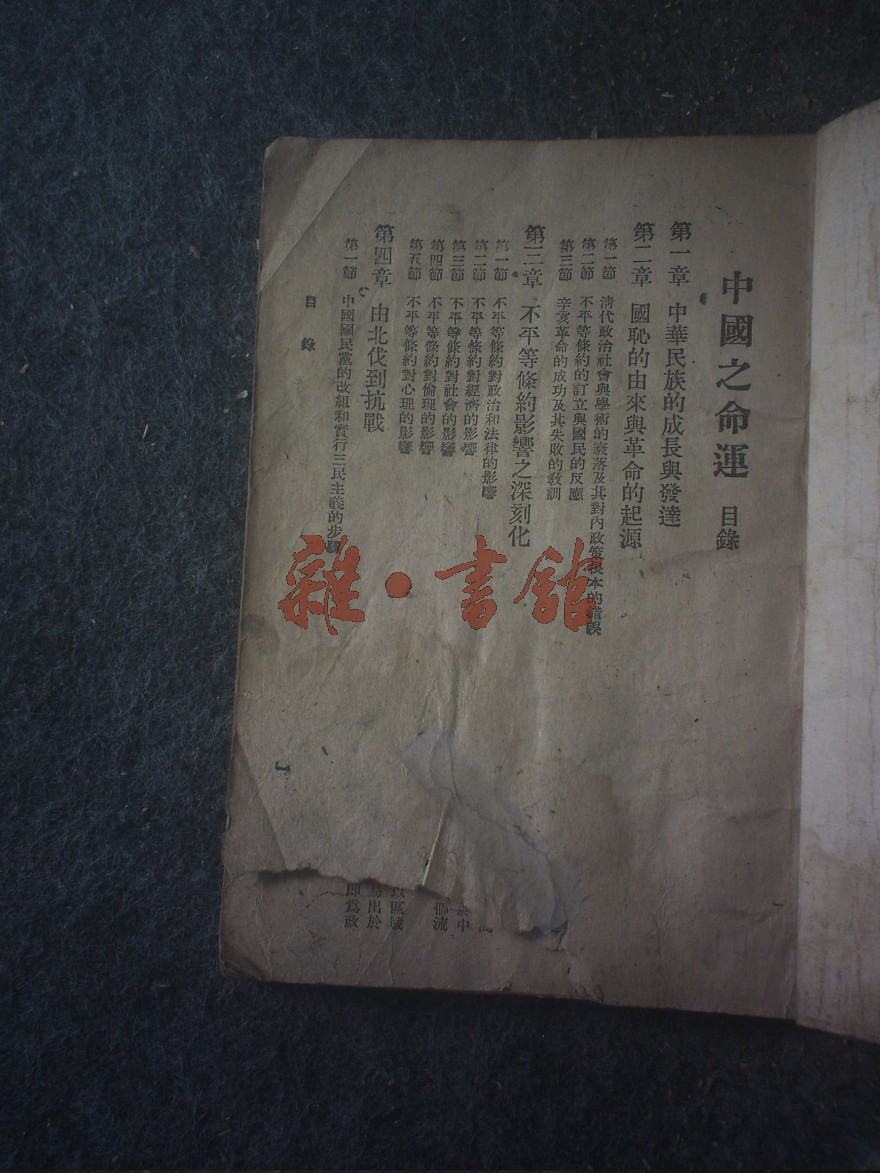 中國之命運 目錄
第一章 中華民族的成長與發達
第二章 國恥的由來與革命的起源
第一節 清代政治社會與學術的衰落及其對內政策根本的錯誤
第二節 不平等條約的訂立與國民的反應
第三節 辛亥革命的成功及其失敗的教訓
第三章 不平等條約影響之深刻化
第一節 不平等條約對政治和法律的影響
第二節 不平等條約對經濟的影響
第三節 不平等條約對社會的影響
第四節 不平等條約對倫理的影響
第五節 不平等條約對心理的影響
第四章 由北伐到抗戰
第一節 中國國民黨的改組和實行三民主義的步驟
目錄
中
流
區域
出於
即為政
雜·書館